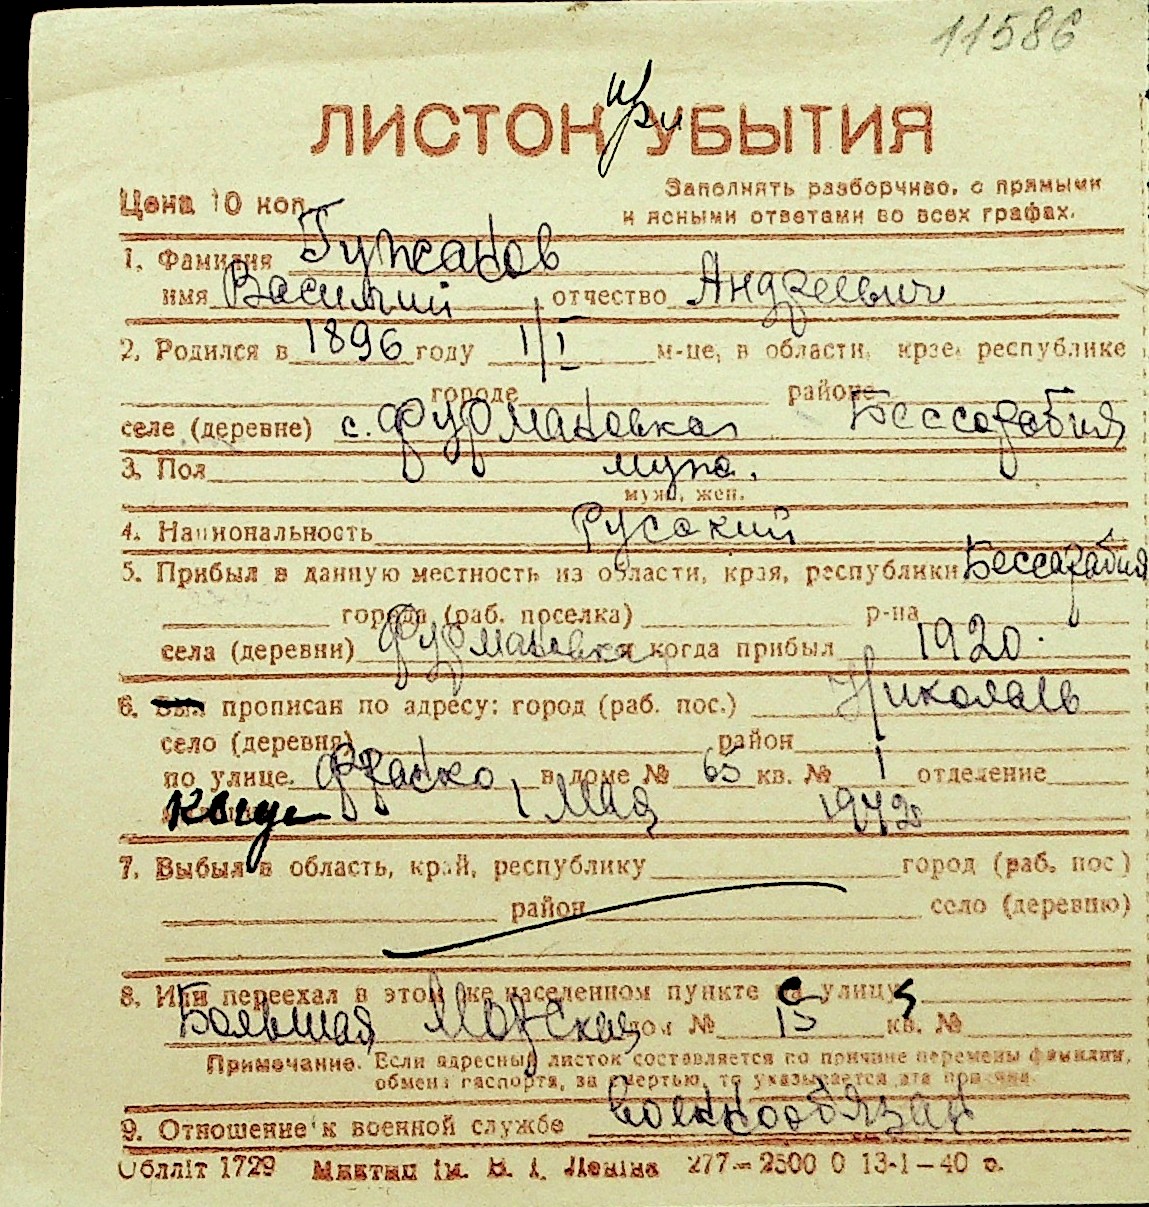 11586
при
ЛИСТОК УБЫТИЯ
Цена 10 коп.
Заполнять разборчиво, с прямыми
и ясными ответами во всех графах.
1. Фамилия Гужаков
имя Василий отчество Андреевич
2. Родился в 1896 году 1/I м-це, в области, крае, республике
городе районе
селе (деревне) с. Фурмановка Бессарабия
3. Пол муж.
муж., жен.
4. Национальность Русский
5. Прибыл в данную местность из области, края, республики Бессарабия
города (раб. поселка) р-на
села (деревни) Фурмановка и когда прибыл 1920.
6. Был прописан по адресу: город (раб. пос.) Николаев
село (деревня) район
по улице. Франко в доме № 65 кв. № 1 отделение
1 Мая 1942
7. Выбыл в область, край, республику город (раб. пос)
район село (деревню)
8. Или переехал в этом же населенном пункте с улицы
Большая Морская дом № 15 кв. №
Примечание. Если адресный листок составляется по причине перемены фамилии,
обмена паспорта, за смертью, то указывается эта причина.
9. Отношение к военной службе военнообязан
Облліт 1729 Миктип ім. В. І. Леніна 277—2500 0 13-1—40 р.